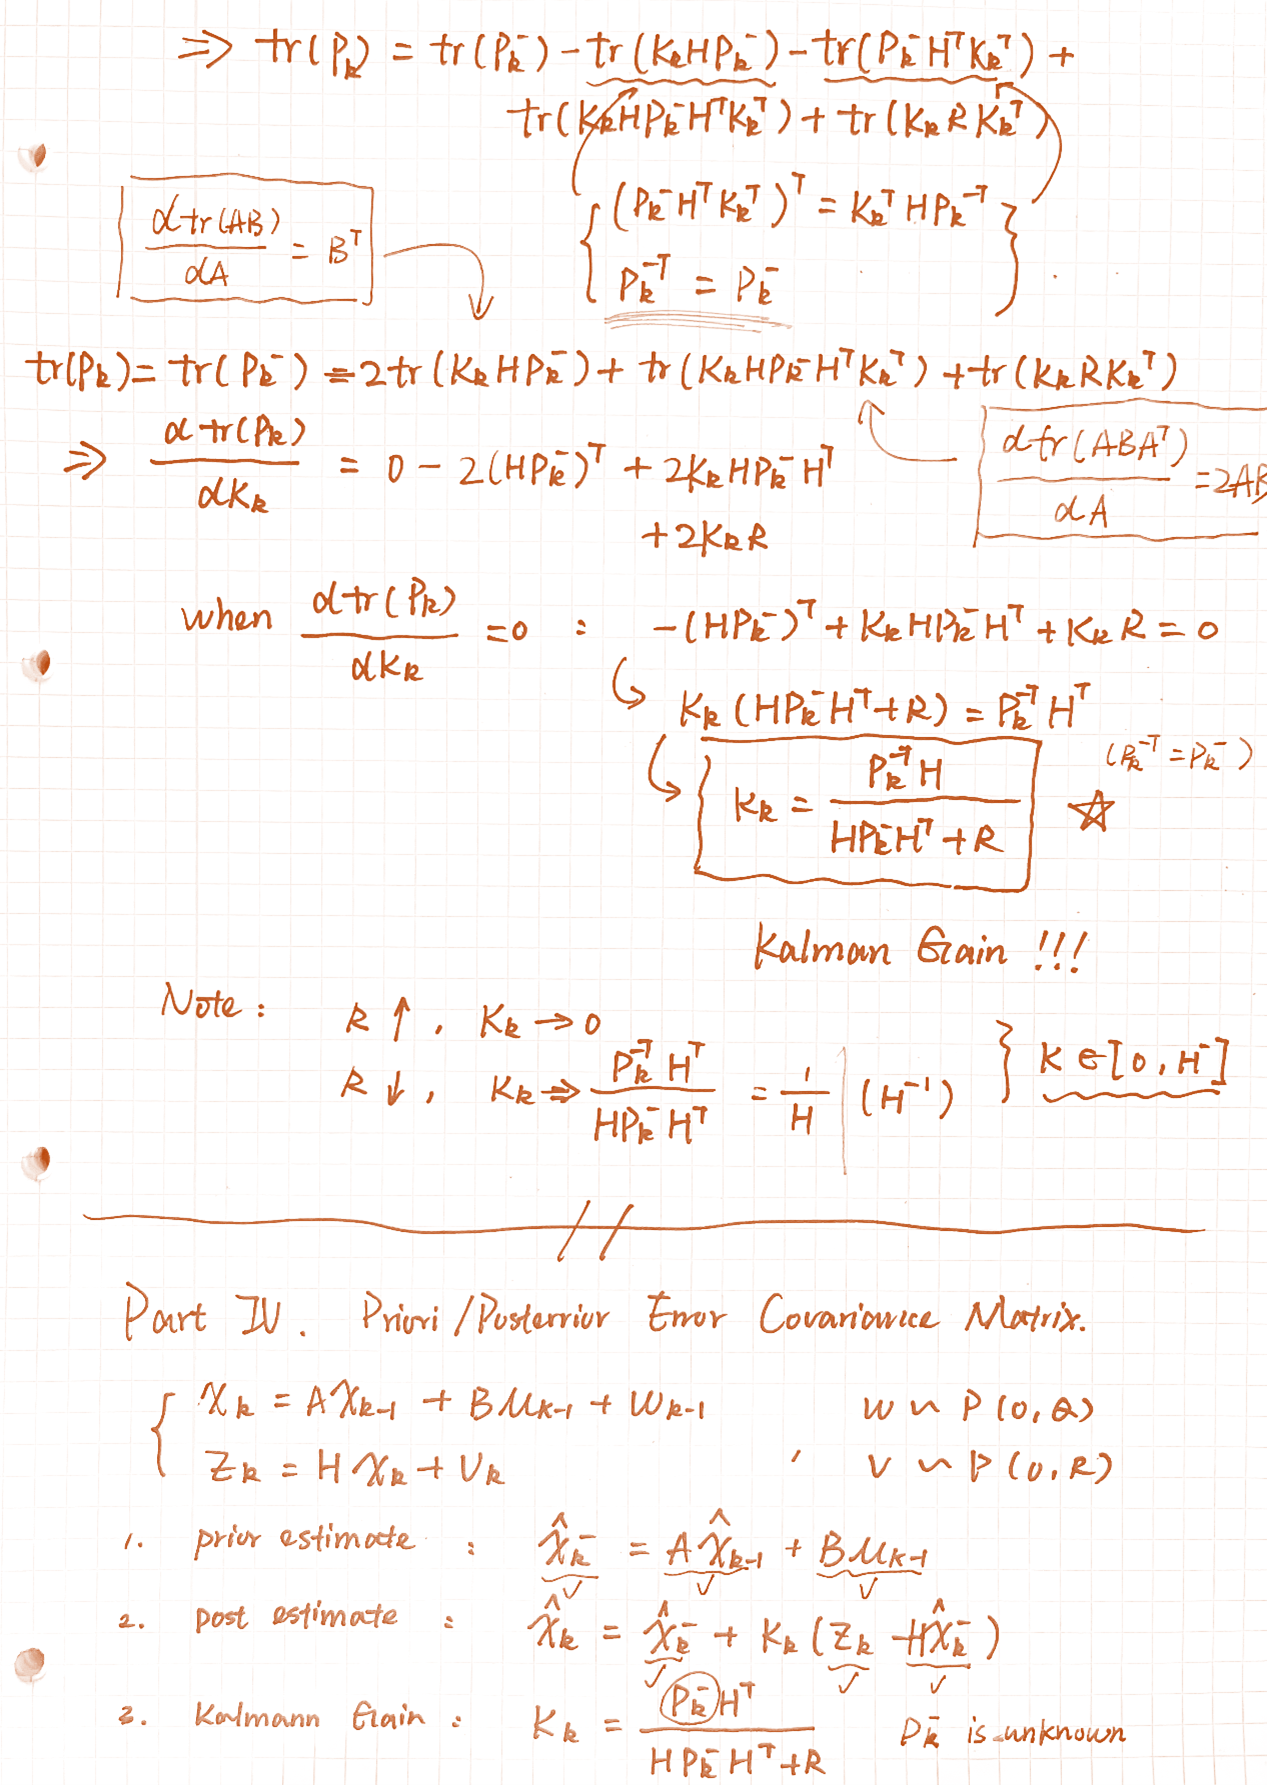 ⇒ tr(P_k) = tr(P_k^-) - tr(K_k H P_k^-) - tr(P_k^- H^T K_k^T) +
tr(K_k H P_k^- H^T K_k^T) + tr(K_k R K_k^T)
d tr(AB) / dA = B^T
{ (P_k^- H^T K_k^T)^T = K_k^T H P_k^{-T}
P_k^{-T} = P_k^- }
tr(P_k) = tr(P_k^-) - 2tr(K_k H P_k^-) + tr(K_k H P_k^- H^T K_k^T) + tr(K_k R K_k^T)
⇒ d tr(P_k) / dK_k = 0 - 2(H P_k^-)^T + 2K_k H P_k^- H^T
+ 2K_k R
d tr(ABA^T) / dA = 2AB
when d tr(P_k) / dK_k = 0 : -(H P_k^-)^T + K_k H P_k^- H^T + K_k R = 0
K_k (H P_k^- H^T + R) = P_k^{-T} H^T
(P_k^{-T} = P_k^-)
K_k = P_k^{-T} H / H P_k^- H^T + R ☆
Kalman Gain !!!
Note : R ↑ , K_k → 0
R ↓ , K_k ⇒ P_k^{-T} H^T / H P_k^- H^T = 1/H | (H^{-1}) } K ∈ [0, H^-]
Part IV. Priori / Posterrior Error Covariance Matrix.
{ x_k = A x_{k-1} + B u_{k-1} + w_{k-1} w ~ P(0, Q)
z_k = H x_k + v_k , v ~ P(0, R)
1. prior estimate : x̂_k^- = A x̂_{k-1} + B u_{k-1}
2. post estimate : x̂_k = x̂_k^- + K_k (z_k - H x̂_k^-)
3. Kalmann Gain : K_k = P_k^- H^T / H P_k^- H^T + R P_k^- is unknown